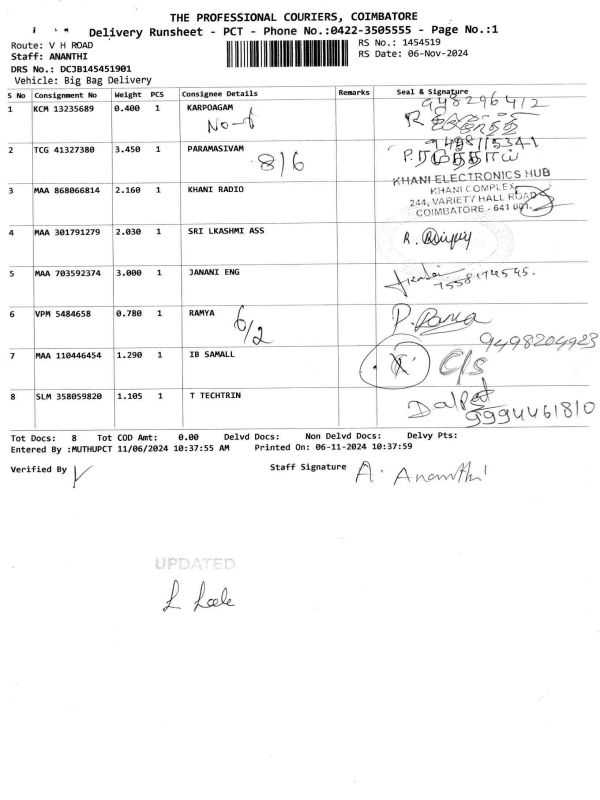 THE PROFESSIONAL COURIERS, COIMBATORE
Delivery Runsheet - PCT - Phone No.:0422-3505555 - Page No.:1
Route: V H ROAD RS No.: 1454519
Staff: ANANTHI RS Date: 06-Nov-2024
DRS No.: DCJB145451901
Vehicle: Big Bag Delivery
S No Consignment No Weight PCS Consignee Details Remarks Seal & Signature
1 KCM 13235689 0.400 1 KARPOAGAM 9482964/2
2 TCG 41327380 3.450 1 PARAMASIVAM 9498115341
8/6
3 MAA 868066814 2.160 1 KHANI RADIO KHANI ELECTRONICS HUB
KHANI COMPLEX
244, VARIETY HALL ROAD
COIMBATORE - 641 001.
4 MAA 301791279 2.030 1 SRI LKASHMI ASS R.
5 MAA 703592374 3.000 1 JANANI ENG
6 VPM 5484658 0.780 1 RAMYA P.
6/2
9498204923
7 MAA 110446454 1.290 1 IB SAMALL C/s
8 SLM 358059820 1.105 1 T TECHTRIN
9994461810
Tot Docs: 8 Tot COD Amt: 0.00 Delvd Docs: Non Delvd Docs: Delvy Pts:
Entered By :MUTHUPCT 11/06/2024 10:37:55 AM Printed On: 06-11-2024 10:37:59
Verified By Staff Signature A. Ananthi
UPDATED